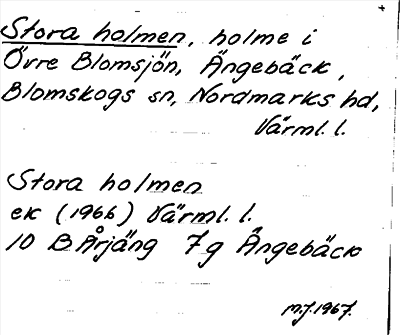 Stora holmen, holme i
Övre Blomsjön, Ängebäck,
Blomskogs sn, Nordmarks hd,
Värml. l.
Stora holmen
ek (1966) Värml. l.
10 B Årjäng 7g Ängebäck
M.J. 1967.